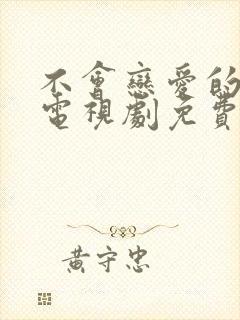 不會戀愛的
電視劇免費
黃守忠